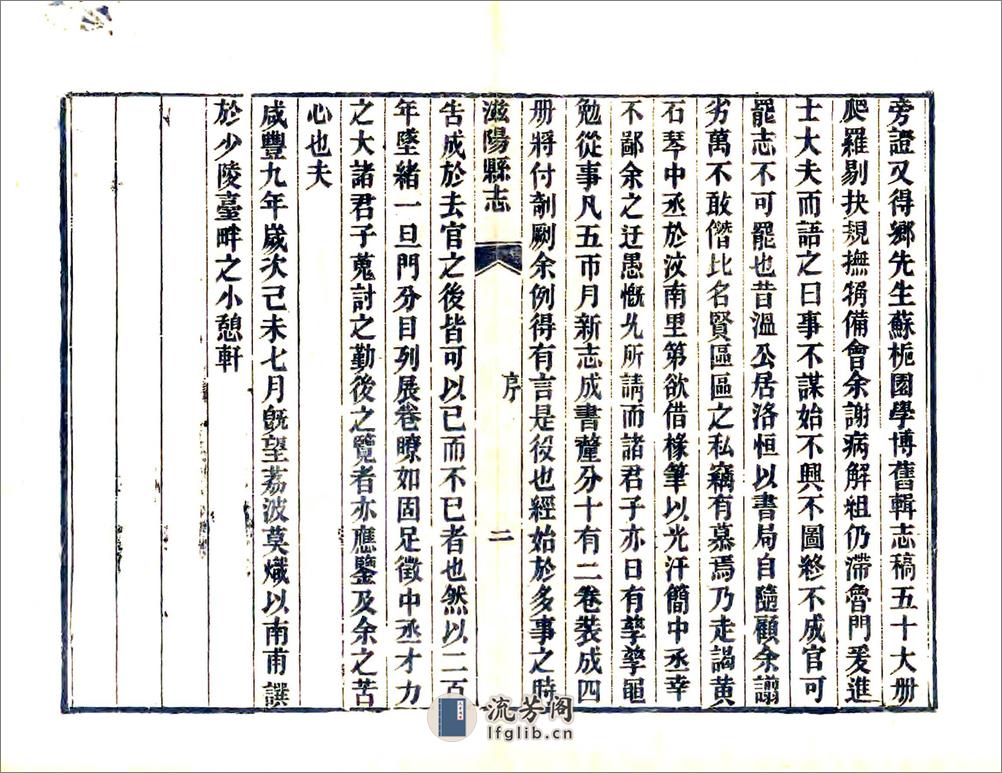 旁證又得鄉先生蘇梔園學博舊輯志稿五十大册
爬羅剔抉規撫犕備會余謝病解組仍滯魯門爰進
士大夫而語之曰事不謀始不興不圖終不成官可
罷志不可罷也昔溫公居洛恒以書局自隨顧余譾
劣萬不敢僭比名賢區區之私竊有慕焉乃走謁黄
石琴中丞於汶南里第欲借椽筆以光汗簡中丞幸
不鄙余之迂愚慨允所請而諸君子亦日有孳孳黽
勉從事凡五帀月新志成書釐分十有二卷裝成四
册將付剞劂余例得有言是役也經始於多事之時
滋陽縣志 序 二
告成於去官之後皆可以已而不已者也然以二百
年墜緒一旦門分目列展卷瞭如固足徵中丞才力
之大諸君子蒐討之勤後之覽者亦應鑒及余之苦
心也夫
咸豐九年歲次己未七月旣望荔波莫熾以南甫譔
於少陵臺畔之小憩軒
流芳阁
lfglib.cn